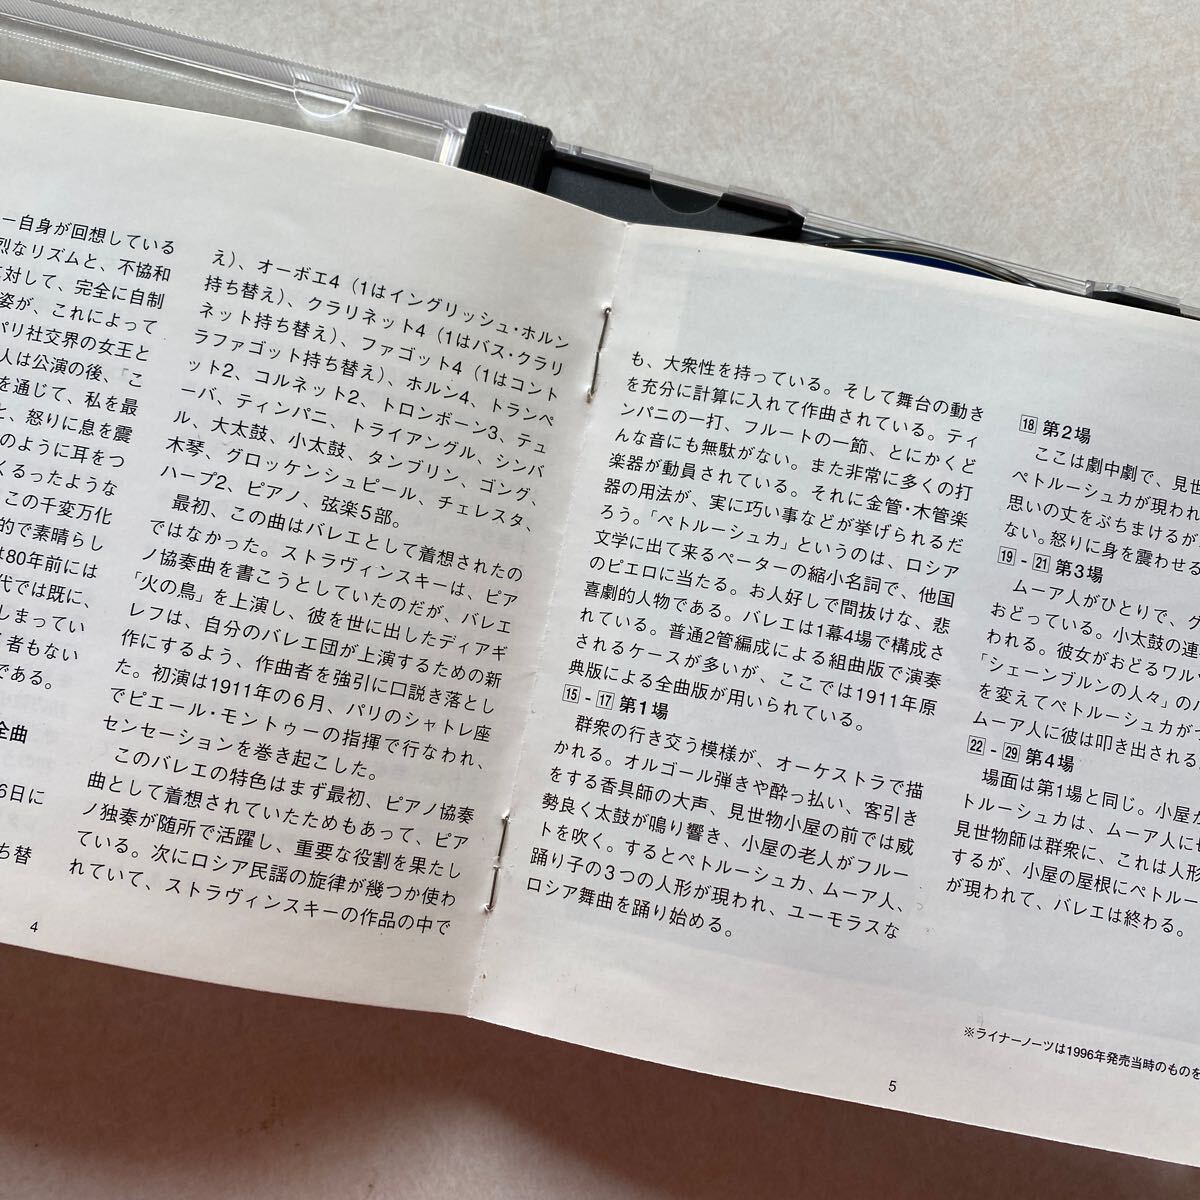 ー自身が回想している
烈なリズムと、不協和
対して、完全に自制
姿が、これによって
パリ社交界の女王と
人は公演の後、「こ
を通じて、私を最
と、怒りに息を震
のように耳をつ
くるったような
この千変万化
的で素晴らし
は80年前には
代では既に、
しまってい
者もない
である。
全曲
6日に
ち替
え)、オーボエ4（1はイングリッシュ・ホルン
持ち替え)、クラリネット4（1はバス・クラリ
ネット持ち替え)、ファゴット4（1はコント
ラファゴット持ち替え)、ホルン4、トランペ
ット2、コルネット2、トロンボーン3、テュ
ーバ、ティンパニ、トライアングル、シンバ
ル、大太鼓、小太鼓、タンブリン、ゴング、
木琴、グロッケンシュピール、チェレスタ、
ハープ2、ピアノ、弦楽5部。
最初、この曲はバレエとして着想されたの
ではなかった。ストラヴィンスキーは、ピア
ノ協奏曲を書こうとしていたのだが、バレエ
「火の鳥」を上演し、彼を世に出したディアギ
レフは、自分のバレエ団が上演するための新
作にするよう、作曲者を強引に口説き落とし
た。初演は1911年の6月、パリのシャトレ座
でピエール・モントゥーの指揮で行なわれ、
センセーションを巻き起こした。
このバレエの特色はまず最初、ピアノ協奏
曲として着想されていたためもあって、ピア
ノ独奏が随所で活躍し、重要な役割を果たし
ている。次にロシア民謡の旋律が幾つか使わ
れていて、ストラヴィンスキーの作品の中で
4
も、大衆性を持っている。そして舞台の動き
を充分に計算に入れて作曲されている。ティ
ンパニの一打、フルートの一節、とにかくど
んな音にも無駄がない。また非常に多くの打
楽器が動員されている。それに金管・木管楽
器の用法が、実に巧い事などが挙げられるだ
ろう。「ペトルーシュカ」というのは、ロシア
文学に出て来るペーターの縮小名詞で、他国
のピエロに当たる。お人好しで間抜けな、悲
喜劇的人物である。バレエは1幕4場で構成さ
れている。普通2管編成による組曲版で演奏
されるケースが多いが、ここでは1911年原
典版による全曲版が用いられている。
15-17 第1場
群衆の行き交う模様が、オーケストラで描
かれる。オルゴール弾きや酔っ払い、客引き
をする香具師の大声、見世物小屋の前では威
勢良く太鼓が鳴り響き、小屋の老人がフルー
トを吹く。するとペトルーシュカ、ムーア人、
踊り子の3つの人形が現われ、ユーモラスな
ロシア舞曲を踊り始める。
18 第2場
ここは劇中劇で、見世
ペトルーシュカが現われ
思いの丈をぶちまけるが
ない。怒りに身を震わせる
19-21 第3場
ムーア人がひとりで、グ
おどっている。小太鼓の連
われる。彼女がおどるワル
「シェーンブルンの人々」の
を変えてペトルーシュカが
ムーア人に彼は叩き出される
22-29 第4場
場面は第1場と同じ。小屋か
トルーシュカは、ムーア人に
見世物師は群衆に、これは人形
するが、小屋の屋根にペトルー
が現われて、バレエは終わる。
※ライナーノーツは1996年発売当時のものを
5